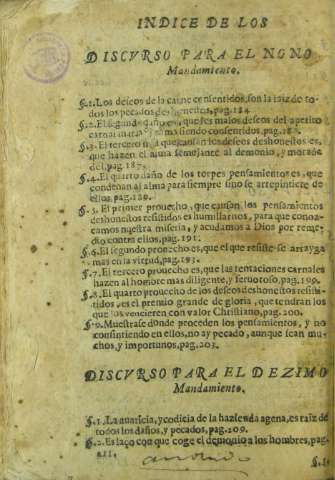 INDICE DE LOS
DISCVRSO PARA EL NONO
Mandamiento.
§.1. Los deseos de la carne consentidos, son la raiz de to-
dos los pecados deshonestos, pag. 184
§.2. El segundo daño es, que los malos deseos del apetito
carnal matan al alma siendo consentidos, pag. 185.
§.3. El tercero mal que causan los deseos deshonestos es,
que hazen el alma semejante al demonio, y morada
del. pag. 187.
§.4. El quarto daño de los torpes pensamientos es, que
condenan al alma para siempre sino se arrepintiere de
ellos, pag. 189.
§.5. El primer prouecho, que causan los pensamientos
deshonestos resistidos es humillarnos, para que conoz-
camos nuestra miseria, y acudamos a Dios por reme-
dio contra ellos, pag. 191.
§.6. El segundo prouecho es, que el que resiste se arrayga
mas en la virtud, pag. 193.
§.7. El tercero prouecho es, que las tentaciones carnales
hazen al hombre mas diligente, y feruoroso, pag. 199.
§.8. El quarto prouecho de los deseos deshonestos resisti-
dos, es el premio grande de gloria, que tendran los
que los vencieren con valor Christiano, pag. 200.
§.9. Muestrase donde proceden los pensamientos, y no
consintiendo en ellos, no ay pecado, aunque sean mu-
chos, y importunos, pag. 203.
DISCVRSO PARA EL DEZIMO
Mandamiento.
§.1. La auaricia, y codicia de la hazienda agena, es raiz de
todos los daños, y pecados, pag. 209.
§.2. Es laço con que coge el demonio a los hombres, pag.
211.